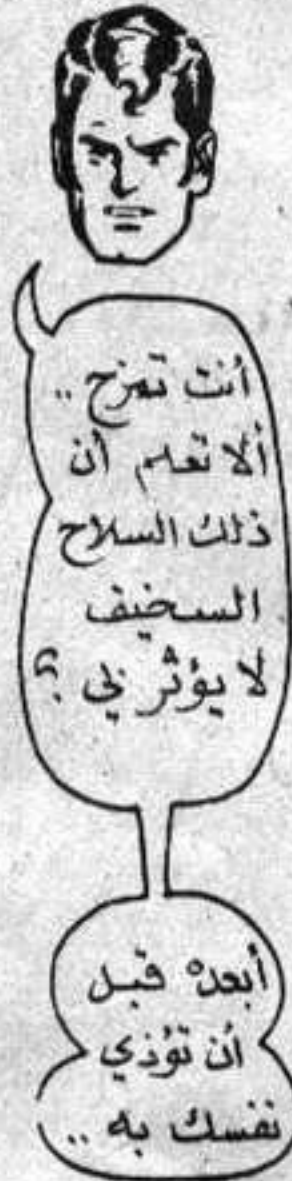 أنت تمزح ..
ألا تعلم أن
ذلك السلاح
السخيف
لا يؤثر بي ؟
أبعده قبل
أن تؤذي
نفسك به ..